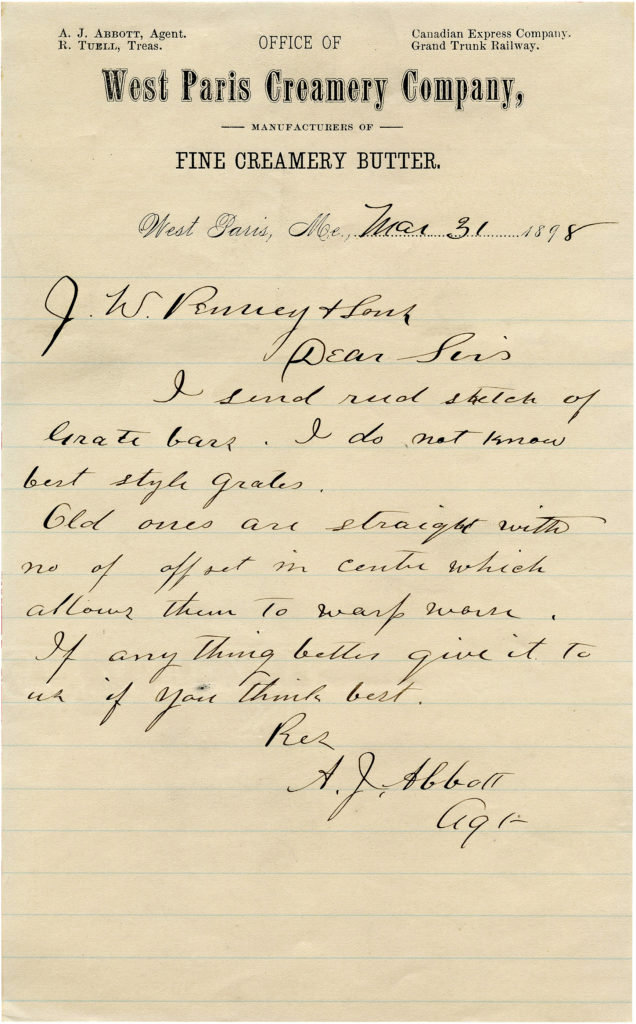 A. J. Abbott, Agent.
R. Tuell, Treas.
OFFICE OF
Canadian Express Company.
Grand Trunk Railway.
West Paris Creamery Company,
MANUFACTURERS OF
FINE CREAMERY BUTTER.
West Paris, Me., Mar 31 1898
J. W. Penney & Sons
Dear Sirs
I send rud sketch of
Grate bars. I do not know
best style grates.
Old ones are straight with
no of offset in centre which
allows them to warp worse.
If any thing better give it to
us if you think best.
Res
A. J. Abbott
Agt